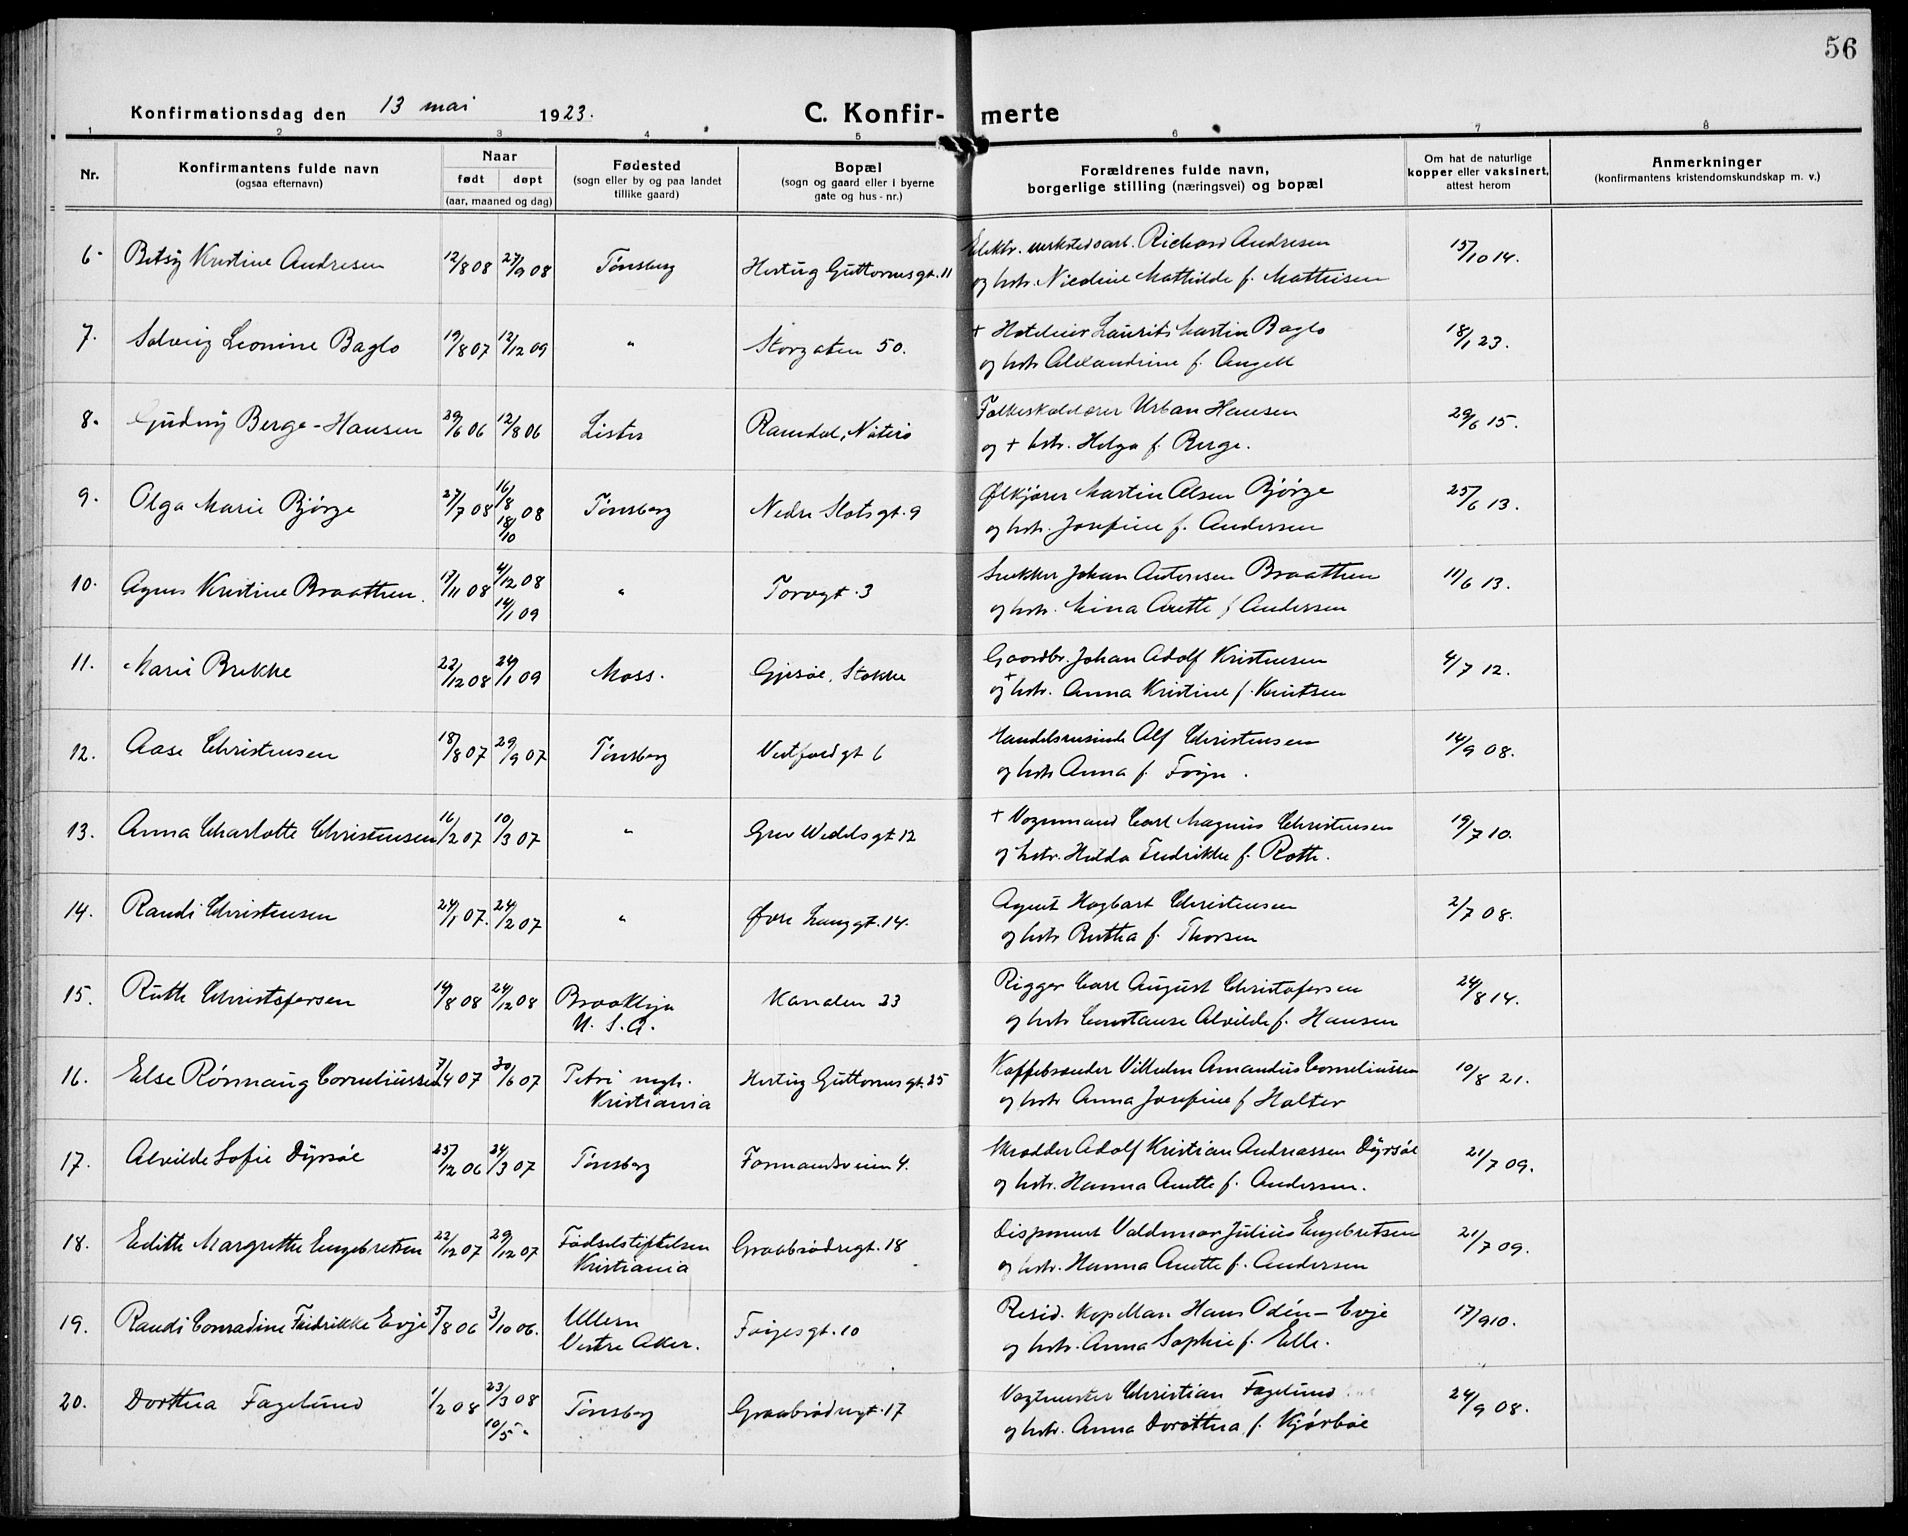 56
Konfirmationsdag den 13 mai 1923.
C. Konfir- merte
1 2 3 4 5 6 7 8
Nr.
Konfirmantens fulde navn
(ogsaa efternavn)
Naar
født døpt
(aar, maaned og dag)
Fødested
(sogn eller by og paa landet
tillike gaard)
Bopæl
(sogn og gaard eller i byerne
gate og hus-nr.)
Forældrenes fulde navn,
borgerlige stilling (næringsvei) og bopæl
Om hat de naturlige
kopper eller vaksinert,
attest herom
Anmerkninger
(konfirmantens kristendomskundskap m. v.)
6. Betsy Kristine Andresen 12/8 08 27/9 08 Tønsberg Hertug Guttormsgt. 11 Elektr. verkstedsarb. Richard Andresen 15/10 14.
og hstr. Nicoline Mathilde f. Mathisen
7. Solveig Leonine Baglo 19/8 07 12/12 09 " Storgaten 50. + Hoteleier Laurits Martin Baglo 18/1 23.
og hstr Alexandrine f. Angell
8. Gudny Berge-Hansen 29/6 06 12/8 06 Lister Ramdal, Nøterø Folkeskolelærer Urban Hansen 29/6 15.
og + hstr. Helga f. Berge.
9. Olga Marie Bjørge 27/7 08 16/8 18/10 08 Tønsberg Nedre Slotsgt. 9 Ølkjører Martin Olsen Bjørge 25/6 13.
og hstr. Josefine f. Andersen
10. Agnes Kristine Braathen. 17/11 08 4/12 08 14/1 09 " Torvgt. 3 Snekker Johan Antonsen Braathen 11/6 13.
og hstr. Mina Anette f Andersen
11. Marie Brekke 22/12 08 24/1 09 Moss. Gjesøe, Stokke Gaardbr. Johan Adolf Kristensen 4/7 12.
og + hstr. Anna Kristine f. Knutsen
12. Aase Christensen 18/8 07 29/9 07 Tønsberg Vestfoldgt 6 Handelsreisende Alf Christensen 14/9 08.
og hstr Anna f. Foyn.
13. Anna Charlotte Christensen 16/2 07 10/3 07 " Grev Wedelsgt 12 + Vognmand Carl Magnus Christensen 19/7 10.
og hstr. Hulda Fredrikke f. Roth.
14. Randi Christensen 24/1 07. 24/2 07 " Øvre Langgt. 14. Agent Hagbart Christensen 2/7 08.
og hstr Ruthea f. Thorsen
15. Ruth Christofersen 14/8 08 24/12 08 Brooklyn Kanalen 23 Rigger Carl August Christofersen 24/8 14.
U. S. A. og hstr Constanse Alvilde f. Hansen
16. Else Rønnaug Corneliussen 7/4 07 30/6 07 Petri mgh. Hertug Guttormsgt. 25 Kaffebrænder Vilhelm Amandus Corneliussen 10/8 21.
Kristiania og hstr Anna Josefine f Holter
17. Alvilde Sofie Dyrsøe 25/12 06 24/3 07 Tønsberg Formandsveien 4. Skrædder Adolf Kristian Andreassen Dyrsøe 21/7 09.
og hstr. Hanna Anette f. Andersen.
18. Edith Margrethe Engebretsen 22/12 07 29/12 07 Fødselstiftelsen Graabrødregt. 18 Disponent Valdemar Julius Engebretsen 21/7 09.
Kristiania og hstr. Hanna Anette f. Andersen
19. Randi Conradine Fredrikke Evje 5/8 06 3/10 06. Ullern Foynsgt. 10 Resid. Kapellan Hans Odén-Evje 17/9 10.
Vestre Aker. og hstr. Anna Sophie f. Elle.
20. Dorthea Fagelund 1/2 08 23/3 08 10/5 " Tønsberg Graabrødregt. 17 Vagtmester Christian Fagelund 24/9 08.
og hstr. Anna Dorothea f. Kjørboe